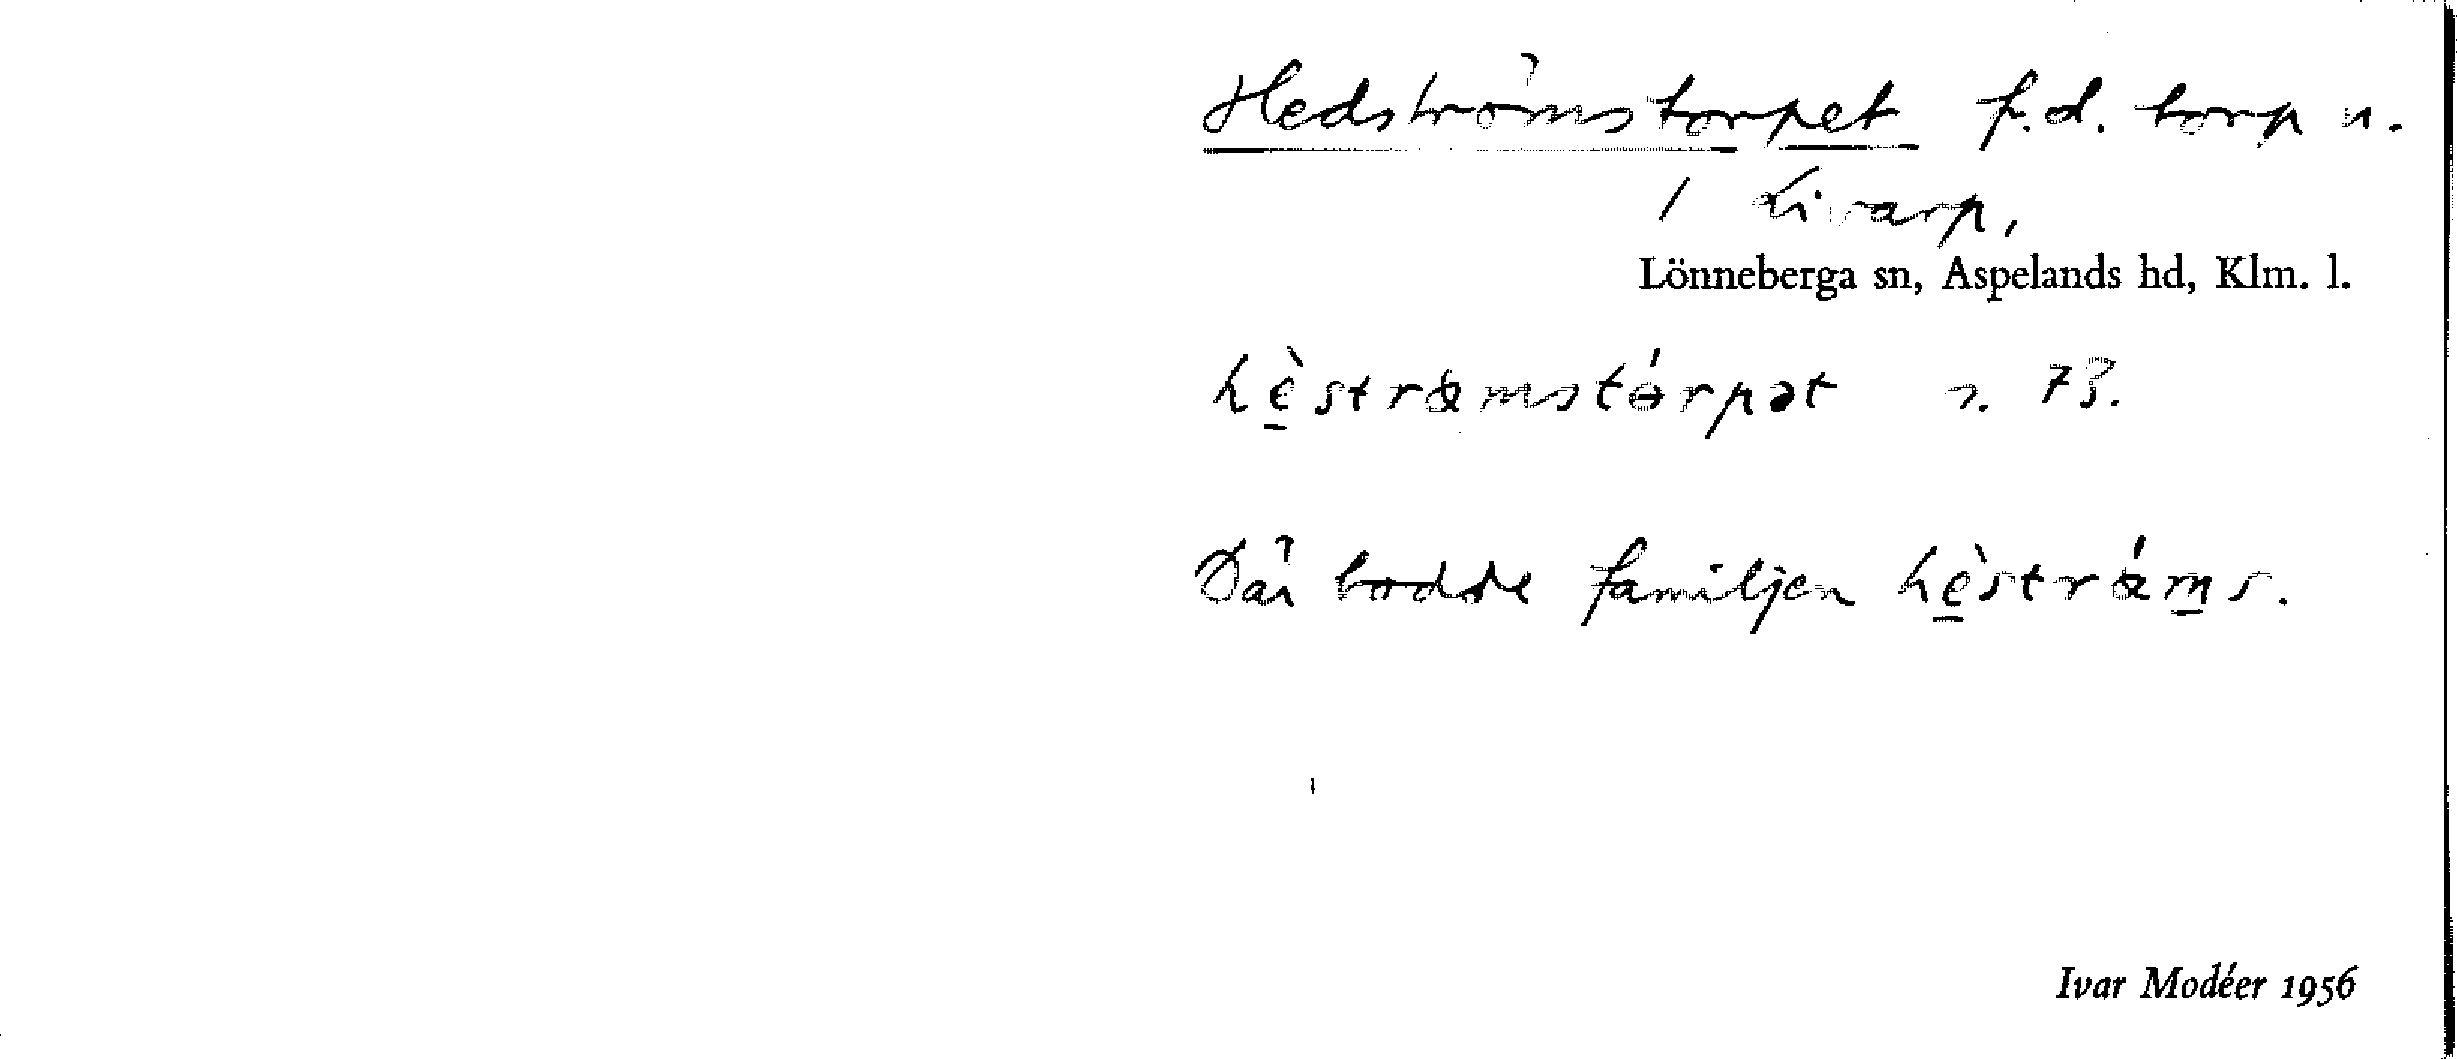 Hedströmstorpet f.d. torp u.
/ Livarp,
Lönneberga sn, Aspelands hd, Klm. l.
hèstrœmstɵ́rpət s. 73.
Där bodde familjen hèstrœ́ms.
Ivar Modéer 1956